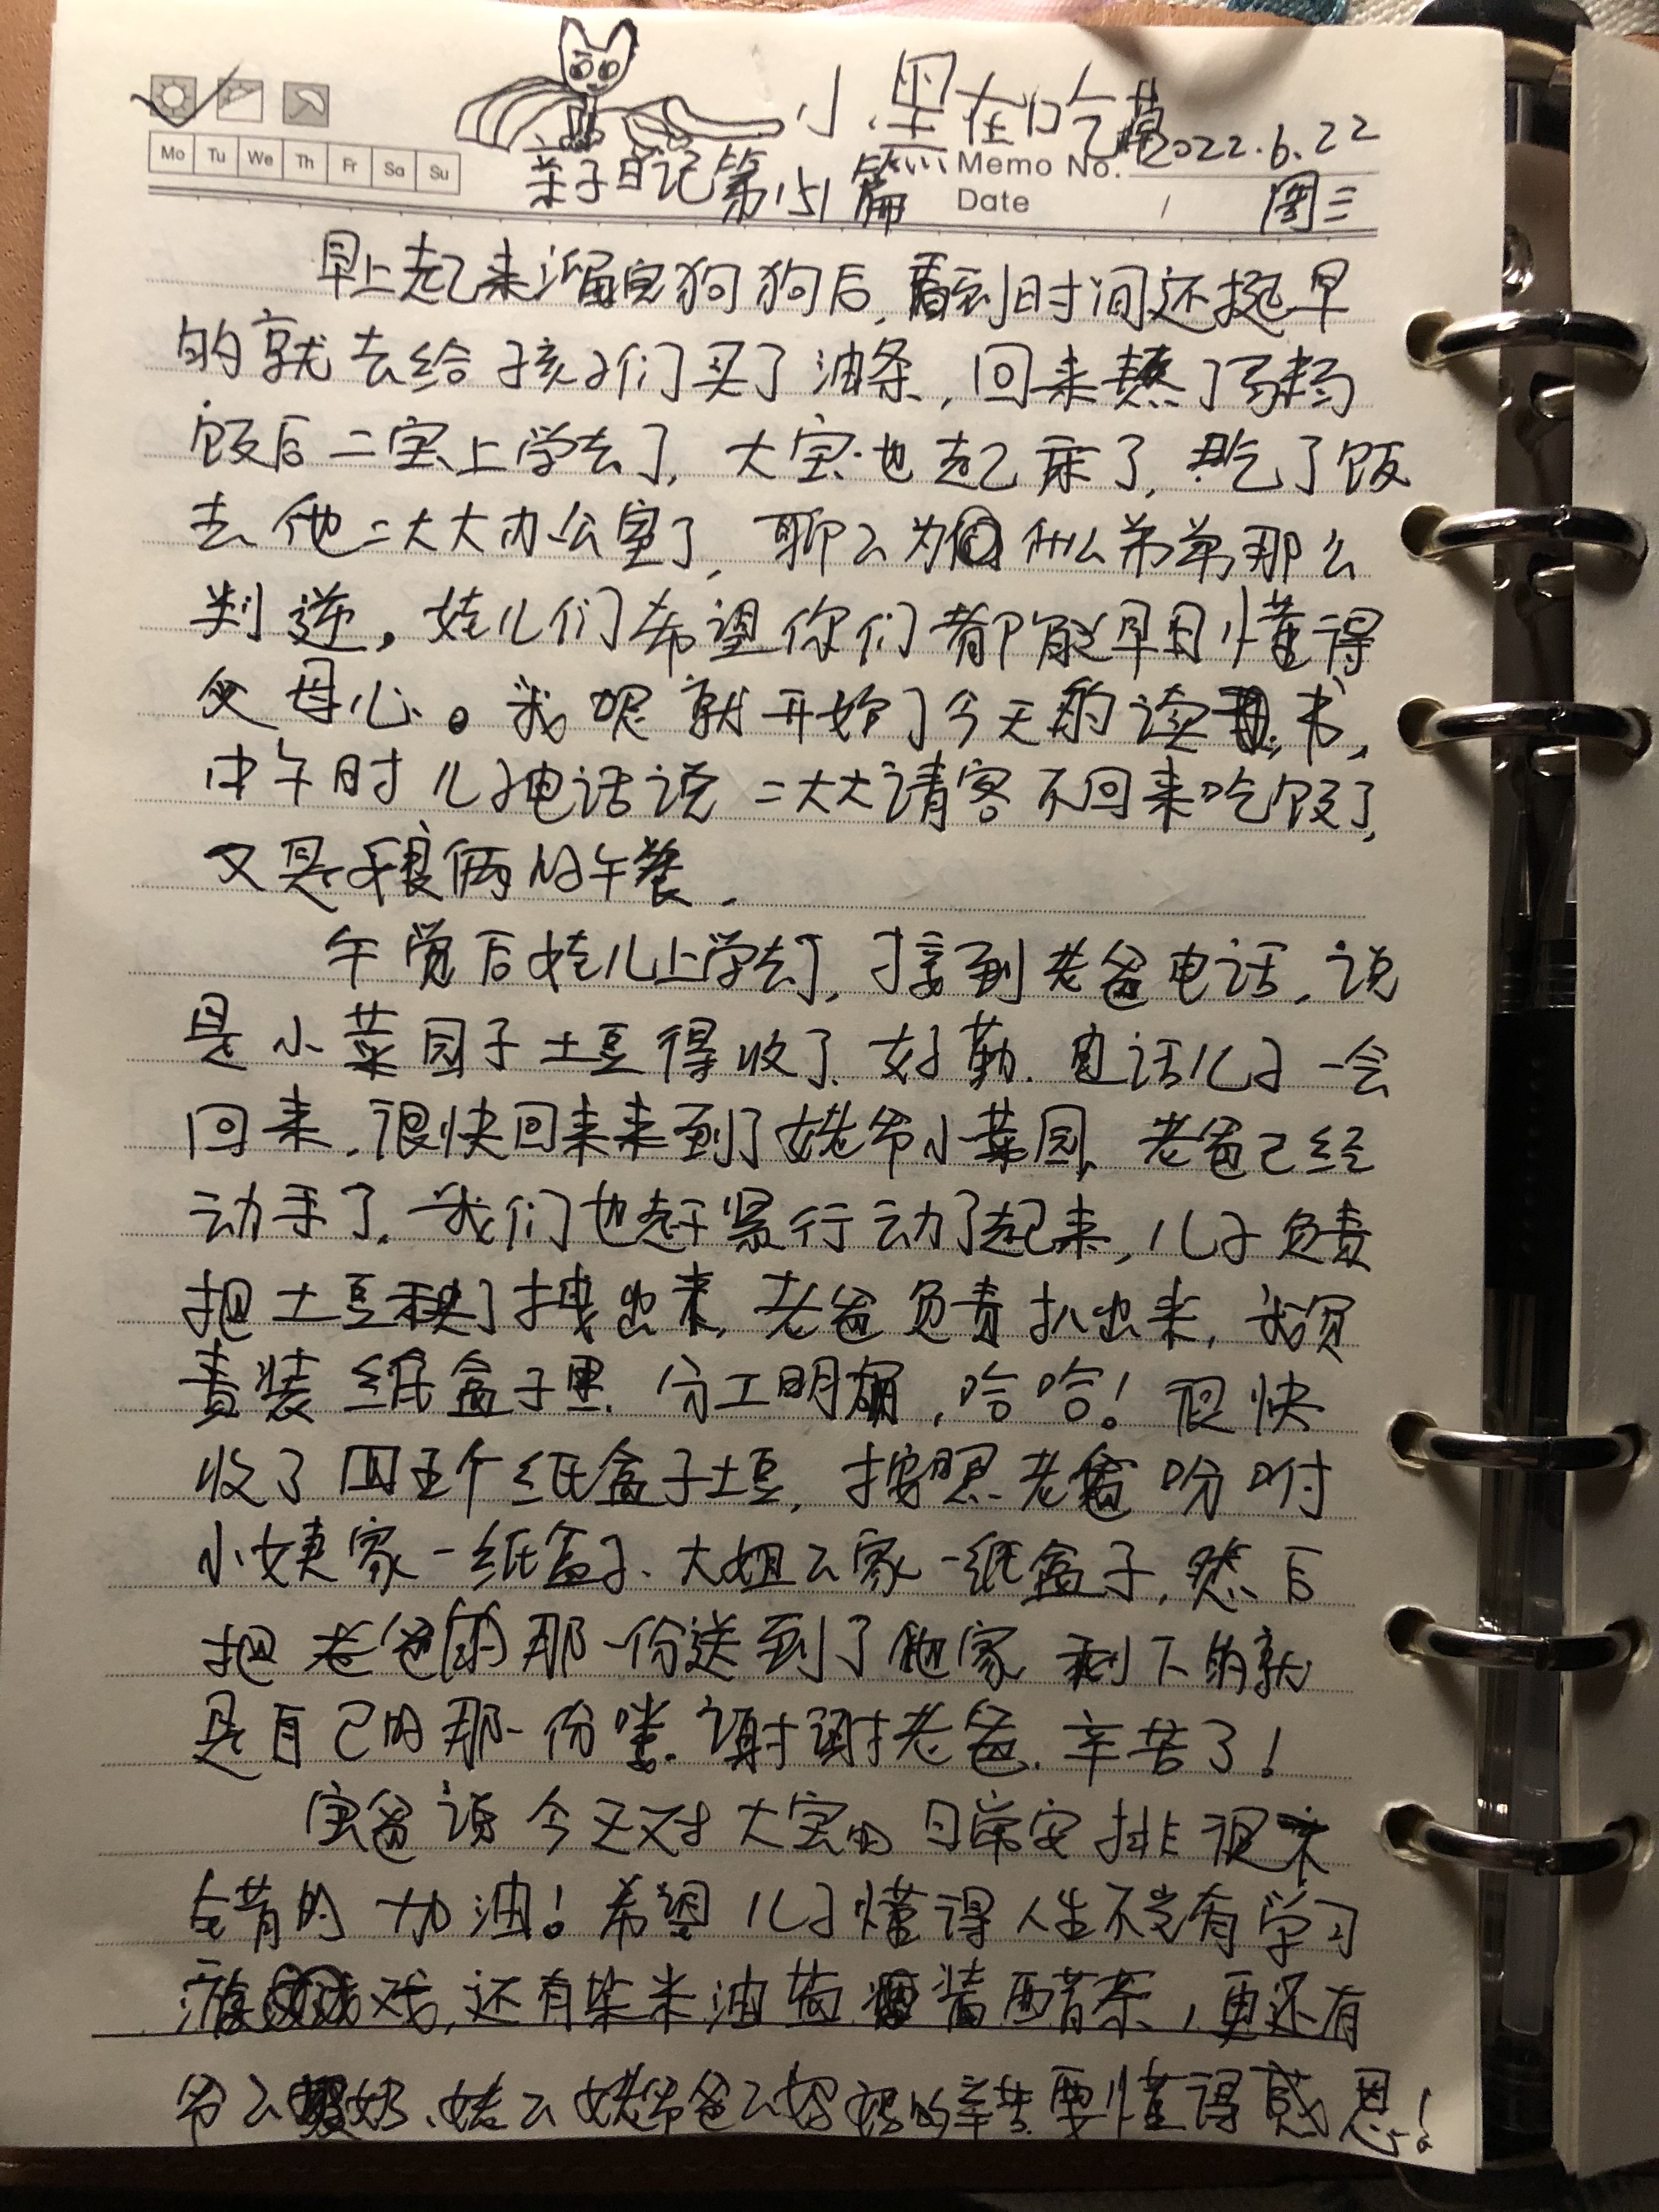 小黑在吃草
2022.6.22
Mo Tu We Th Fr Sa Su
亲子日记第151篇
Memo No.
Date
周三
早上起来溜完狗狗后,看到时间还挺早
的就去给孩子们买了油条,回来熬了
饭后二宝上学去了,大宝也起床了,吃了饭
去他二大大办公室了,聊聊为什么弟弟那么
判逆,娃儿们希望你们都能早日懂得
父母心。我呢就开始了今天的读书,
中午时儿子电话说二大大请客不回来吃饭了,
又是娘俩的午餐.
午觉后娃儿上学去了,接到老爸电话,说
是小菜园子土豆得收了.好勤.电话儿子一会
回来,很快回来来到了姥爷小菜园,老爸已经
动手了.我们也赶紧行动了起来,儿子负责
把土豆秧子拽出来,老爸负责扒出来,我负
责装纸盒子里.分工明确,哈哈!很快
收了四五个纸盒子土豆,按照老爸吩咐
小姨家一纸盒子、大姐家一纸盒子,然后
把老爸的那一份送到了他家,剩下的就
是自己的那一份喽.谢谢老爸.辛苦了!
宝爸说今天对大宝的日常安排很不
错的加油!希望儿子懂得人生不光有学习
游戏,还有柴米油盐酱醋茶,更还有
爷爷奶奶、姥姥姥爷爸爸妈妈的辛苦要懂得感恩!